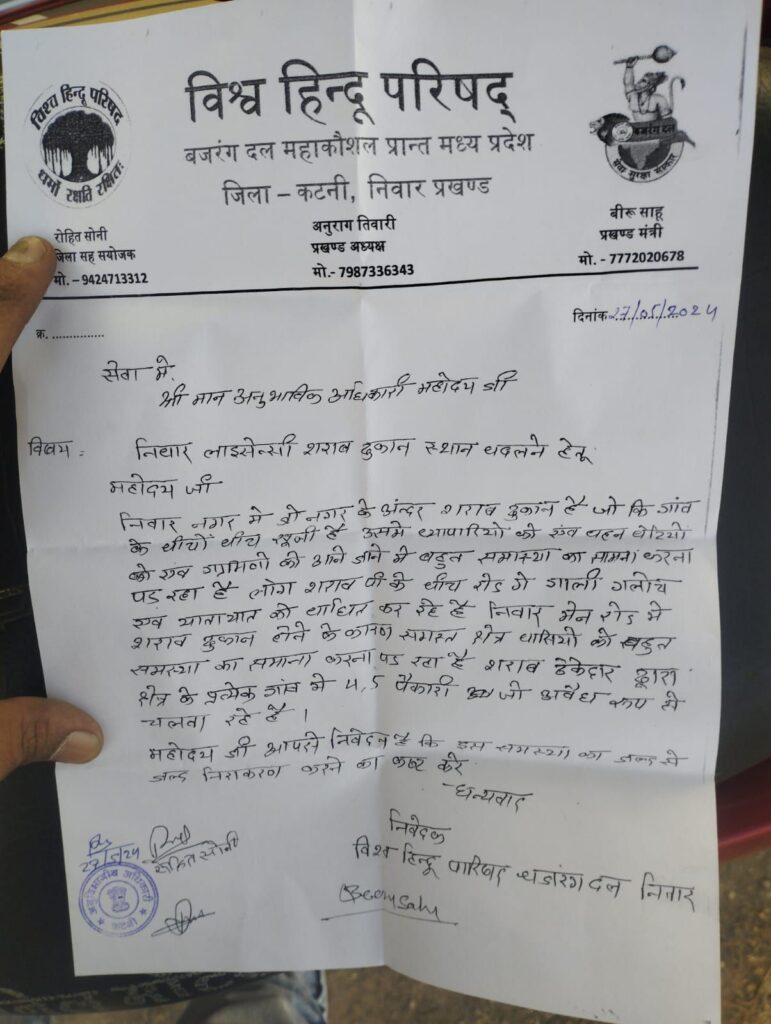 विश्व हिन्दू परिषद्
धर्मो रक्षति रक्षितः
विश्व हिन्दू परिषद्
बजरंग दल महाकौशल प्रान्त मध्य प्रदेश
जिला – कटनी, निवार प्रखण्ड
बजरंग दल
सेवा सुरक्षा संस्कार
रोहित सोनी
जिला सह सयोजक
मो. – 9424713312
अनुराग तिवारी
प्रखण्ड अध्यक्ष
मो.- 7987336343
बीरू साहू
प्रखण्ड मंत्री
मो. - 7772020678
क्र. ..............
दिनांक 27/05/2024
सेवा मे,
श्री मान अनुभाविक अधिकारी महोदय जी
विषय : निवार लाइसेन्सी शराब दुकान स्थान बदलने हेतू
महोदय जी
निवार नगर मे जो नगर के अंन्दर शराब दुकान है जो कि गांव
के बीचों बीच है उसमे व्यापारियो को एंव बहन बेटियों
को एंव ग्रामिणो को आने जाने मे बहुत समास्या का सामना करना
पड़ रहा है लोग शराब पी के बीच रोड मे गाली गलोच
एंव यातायात को बाधित कर रहे है निवार मेन रोड मे
शराब दुकान होने के कारण समस्त क्षेत्र वासियो को बहुत
समस्या का समाना करना पड रहा है शराब ठेकेदार द्वारा
क्षेत्र के प्रत्येक गांव मे 4,5 पैकारी जो अवैध रूप से
चलवा रहे है ।
महोदय जी आपसे निवेदन है कि इस समस्या का जल्द से
जल्द निराकरण करने का कष्ट करे
धन्यवाद
निवेदक
विश्व हिन्दू परिषद बजरंग दल निवार
Beerusahu
रोहित सोनी
अनुविभागीय अधिकारी
कटनी